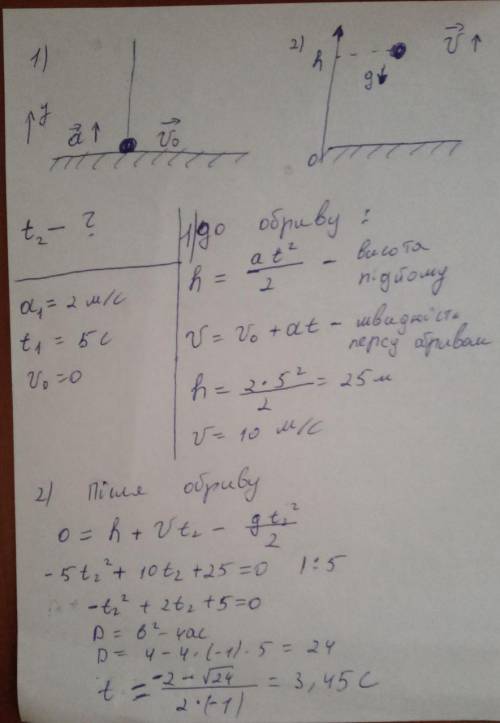 1)
y
a⃗ ↑
v⃗₀
2)
h
g↓
v⃗ ↑
0
t₂ – ?
a₁ = 2 м/с
t₁ = 5 с
v₀ = 0
1) до обриву :
h = at²/2 – висота підйому
v = v₀ + at – швидкість персу обривом
h = 2·5²/2 = 25 м
v = 10 м/с
2) Після обриву
0 = h + vt₂ - gt₂²/2
-5t₂² + 10t₂ + 25 = 0 | : 5
-t₂² + 2t₂ + 5 = 0
D = b² - 4ac
D = 4 - 4·(-1)·5 = 24
t = (-2 - √24)/(2·(-1)) = 3,45 с